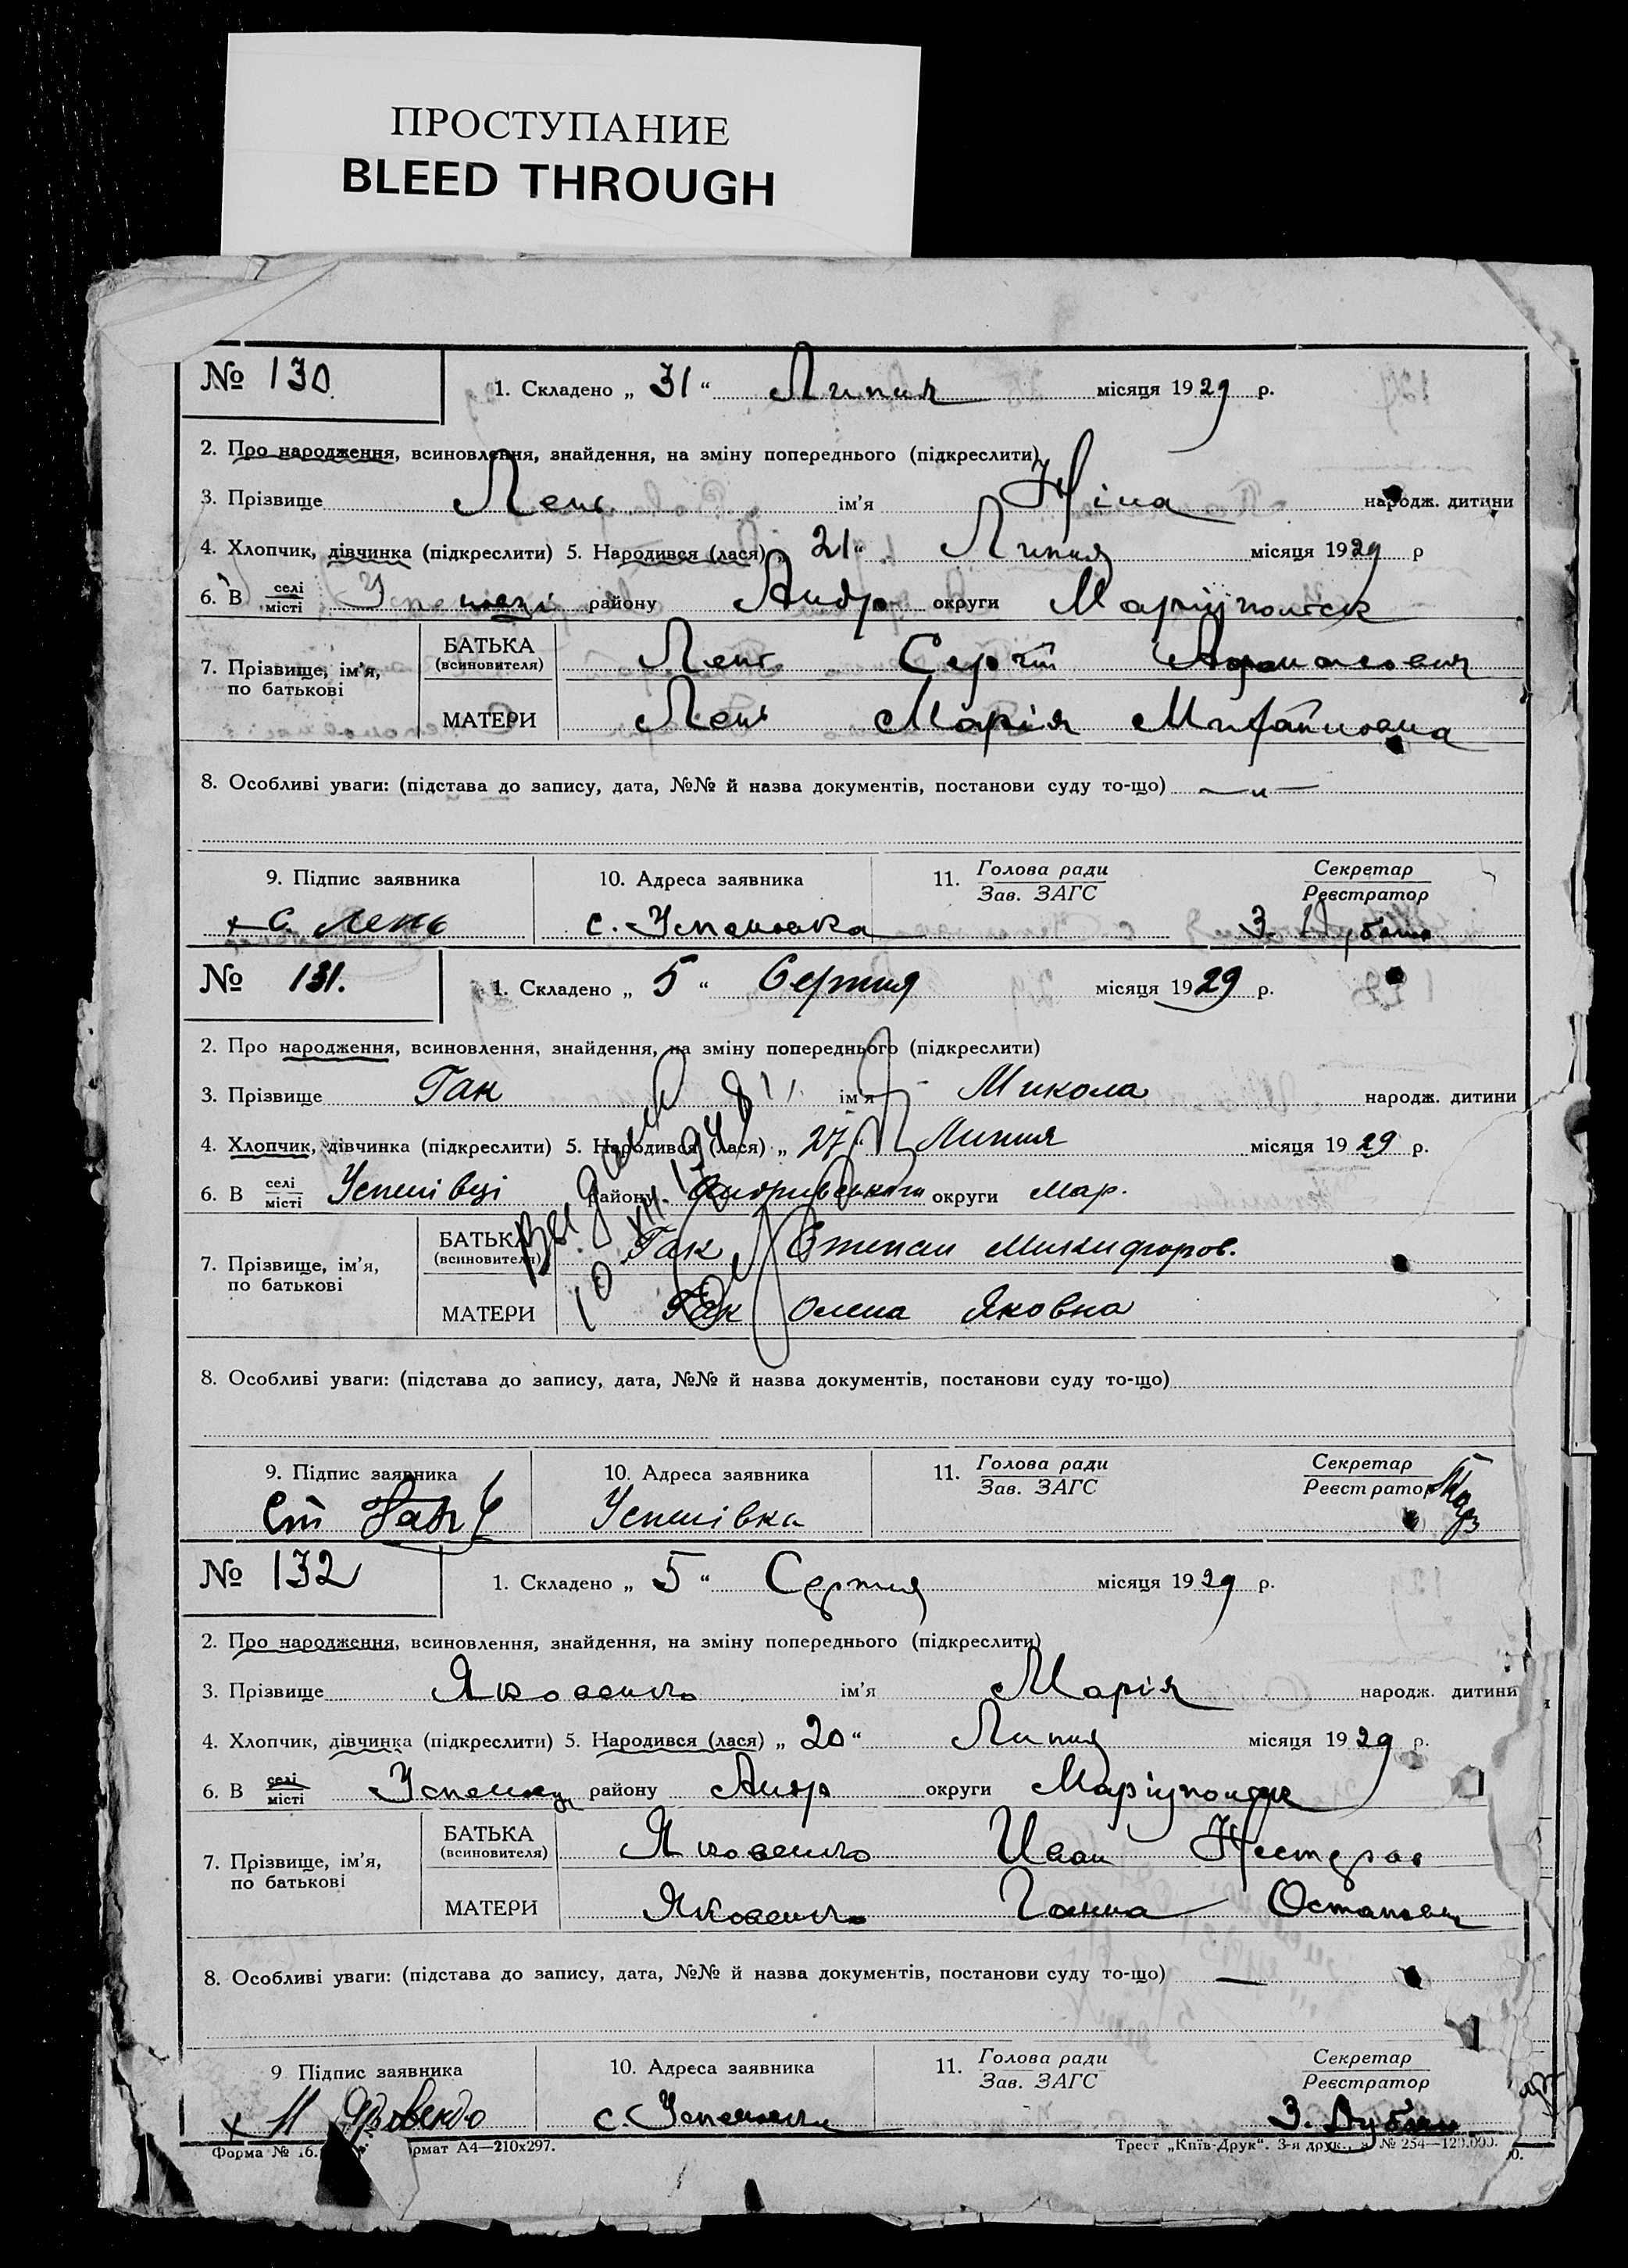 ПРОСТУПАНИЕ
BLEED THROUGH
№ 130. 1. Складено „ 31 “ Липня місяця 1929 р.
2. Про народження, всиновлення, знайдення, на зміну попереднього (підкреслити)
3. Прізвище Лень ім'я Ніна народж. дитини
4. Хлопчик, дівчинка (підкреслити) 5. Народився (лася) „ 21 “ Липня місяця 1929 р
6. В селі місті району Андр округи
7. Прізвище, ім'я, по батькові БАТЬКА (всиновителя) Лень Сергій
МАТЕРИ Лень Марія
8. Особливі уваги: (підстава до запису, дата, №№ й назва документів, постанови суду то-що) — „ —
9. Підпис заявника 10. Адреса заявника 11. Голова ради Зав. ЗАГС Секретар Реєстратор
х С. Лень с. Успеновка З.
№ 131. 1. Складено „ 5 “ Серпня місяця 1929 р.
2. Про народження, всиновлення, знайдення, на зміну попереднього (підкреслити)
3. Прізвище Гак ім'я Микола народж. дитини
4. Хлопчик, дівчинка (підкреслити) 5. Народився (лася) „ 27 “ Липня місяця 1929 р.
6. В селі місті Успенівці району округи Мар.
7. Прізвище, ім'я, по батькові БАТЬКА (всиновителя) Гак Степан Микифоров.
МАТЕРИ Гак Олена Яковна
8. Особливі уваги: (підстава до запису, дата, №№ й назва документів, постанови суду то-що)
9. Підпис заявника 10. Адреса заявника 11. Голова ради Зав. ЗАГС Секретар Реєстратор
Успенівка
№ 132 1. Складено „ 5 “ Серпня місяця 1929 р.
2. Про народження, всиновлення, знайдення, на зміну попереднього (підкреслити)
3. Прізвище Яковенко ім'я Марія народж. дитини
4. Хлопчик, дівчинка (підкреслити) 5. Народився (лася) „ 20 “ Липня місяця 1929 р.
6. В селі місті району Андр округи
7. Прізвище, ім'я, по батькові БАТЬКА (всиновителя) Яковенко Иван Нестеров
МАТЕРИ Яковенко Ганна
8. Особливі уваги: (підстава до запису, дата, №№ й назва документів, постанови суду то-що) —
9 Підпис заявника 10. Адреса заявника 11. Голова ради Зав. ЗАГС Секретар Реєстратор
х с. З.
Форма № 16. А4—210х297. Трест „Київ-Друк“. 3-я друк., № 254—120.000.